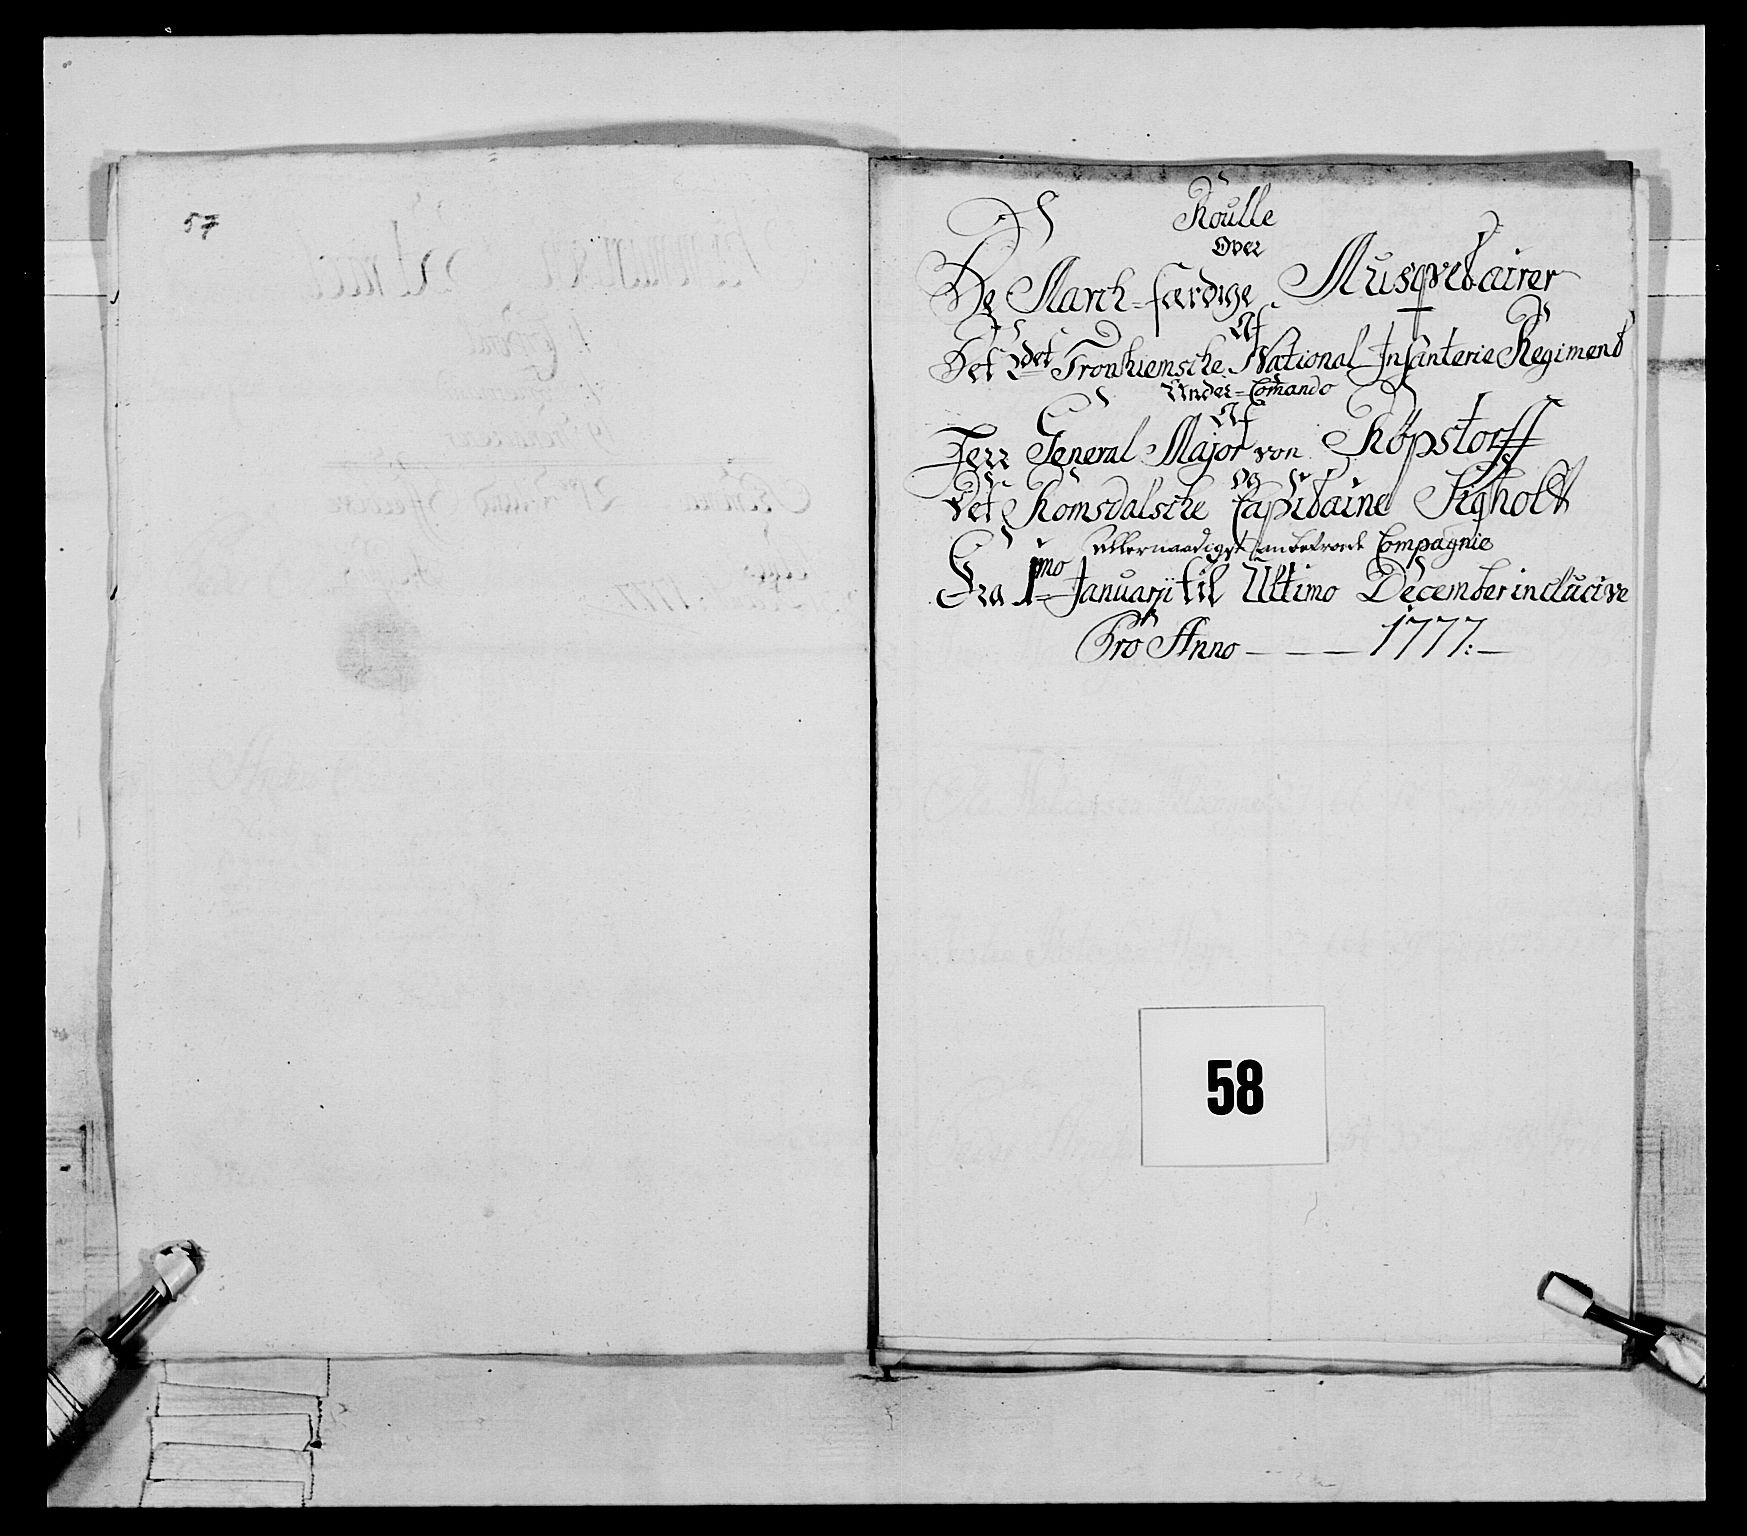 57
Roulle
Over
De March-færdige Musqvetairer
Af
Det 2det Tronhiemske National Infanterie Regiment
Under-Comando
Af
Herr General Major von Røpstorff
Og
Det Romsdalske Capitaine Sigholt
allernaadigst anbetroede Compagnie
Fra 1mo Januarji til Ultimo December inclucive
Pro Anno — — — 1777:—
58